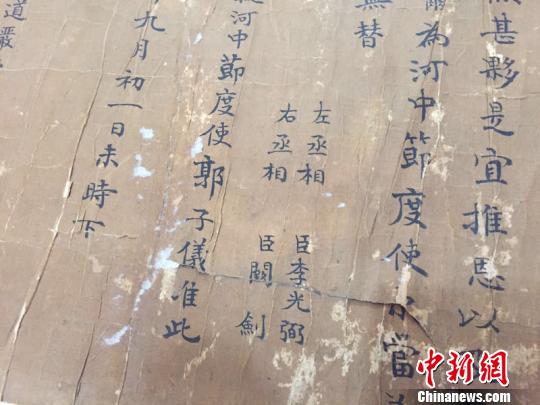 甚夥是宜推恩以
爾為河中節度使
當
無替
左丞相 臣李光弼
右丞相 臣 劍
河中節度使郭子儀准此
九月初一日未時下
道嚴
中新網
Chinanews.com